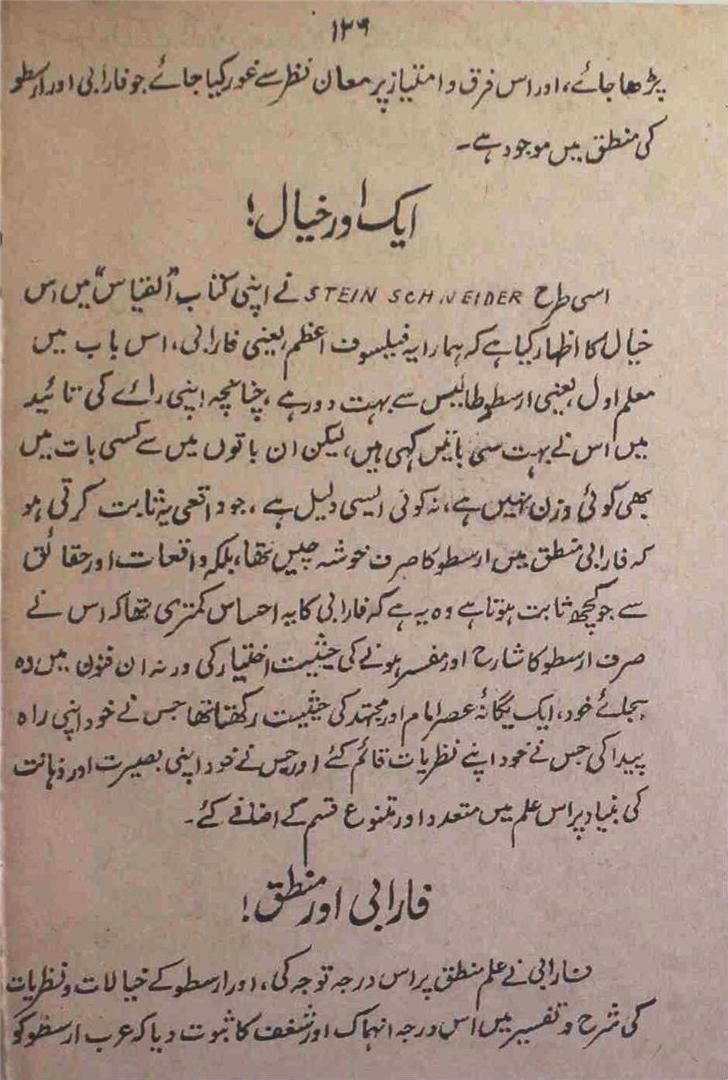 ۱۲۹
پڑھا جائے، اور اس فرق و امتیاز پر معان نظر سے غور کیا جائے جو فارابی اور ارسطو
کی منطق میں موجود ہے۔
ایک اور خیال!
اسی طرح STEIN SCHNEIDER نے اپنی کتاب "القیاس" میں اس
خیال کا اظہار کیا ہے کہ ہمارا یہ فیلسوف اعظم یعنی فارابی، اس باب میں
معلم اول یعنی ارسطوطالیس سے بہت دور ہے، چنانچہ اپنی رائے کی تائید
میں اس نے بہت سی باتیں کہی ہیں، لیکن ان باتوں میں سے کسی بات میں
بھی کوئی وزن نہیں ہے، نہ کوئی ایسی دلیل ہے، جو واقعی یہ ثابت کرتی ہو
کہ فارابی منطق میں ارسطو کا صرف خوشہ چیں تھا، بلکہ واقعات اور حقائق
سے جو کچھ ثابت ہوتا ہے وہ یہ ہے کہ فارابی کا یہ احساس کمتری تھا کہ اس نے
صرف ارسطو کا شارح اور مفسر ہونے کی حیثیت اختیار کی ورنہ ان فنون میں وہ
بجائے خود، ایک یگانۂ عصر امام اور مجتہد کی حیثیت رکھتا تھا جس نے خود اپنی راہ
پیدا کی جس نے خود اپنے نظریات قائم کئے اور جس نے خود اپنی بصیرت اور ذہانت
کی بنیاد پر اس علم میں متعدد اور متنوع قسم کے اضافے کئے۔
فارابی اور منطق!
فارابی نے علم منطق پر اس درجہ توجہ کی، اور ارسطو کے خیالات و نظریات
کی شرح و تفسیر میں اس درجہ انہماک اور شغف کا ثبوت دیا کہ عرب ارسطو کو